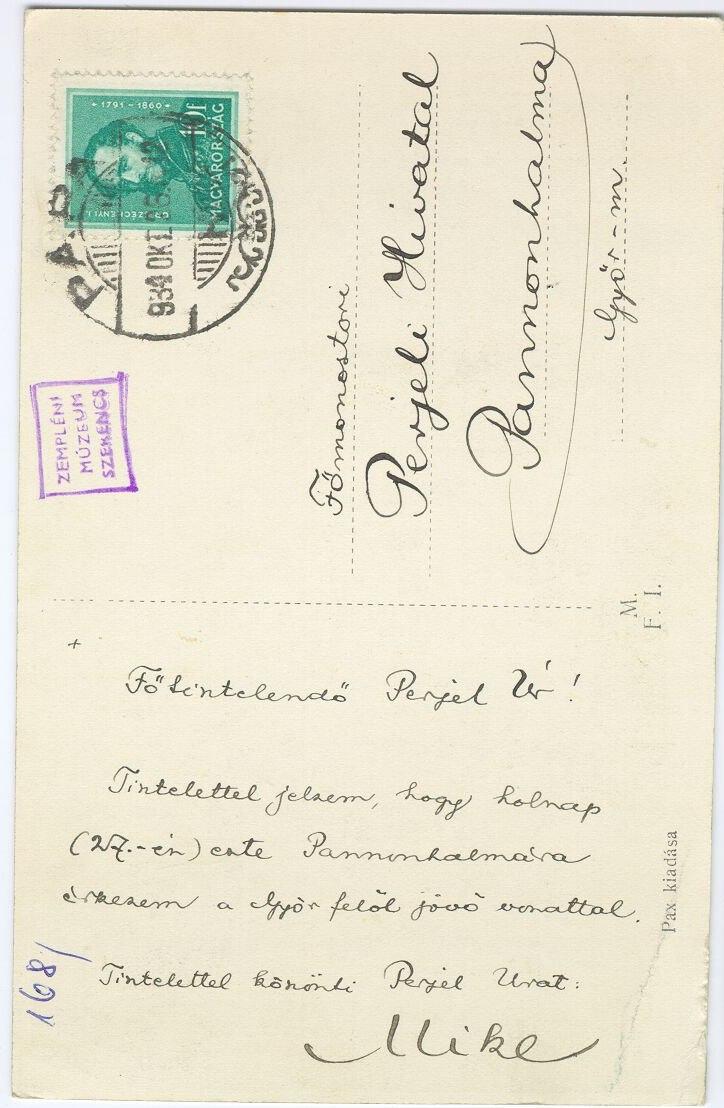 + 1791 - 1860 +
10f
MAGYARORSZÁG
GR. SZÉCHENYI I.
PÁPA
934 OKT
ZEMPLÉNI
MÚZEUM
SZERENCS
Főmonostori
Perjeli Hivatal
Pannonhalma
Győr-m.
M.
F. I.
+
Főtisztelendő Perjel Úr!
Tisztelettel jelzem, hogy holnap
(27.-én) este Pannonhalmára
érkezem a Győr felől jövő vonattal.
Tisztelettel köszönti Perjel Urat:
Mike
168/
Pax kiadása